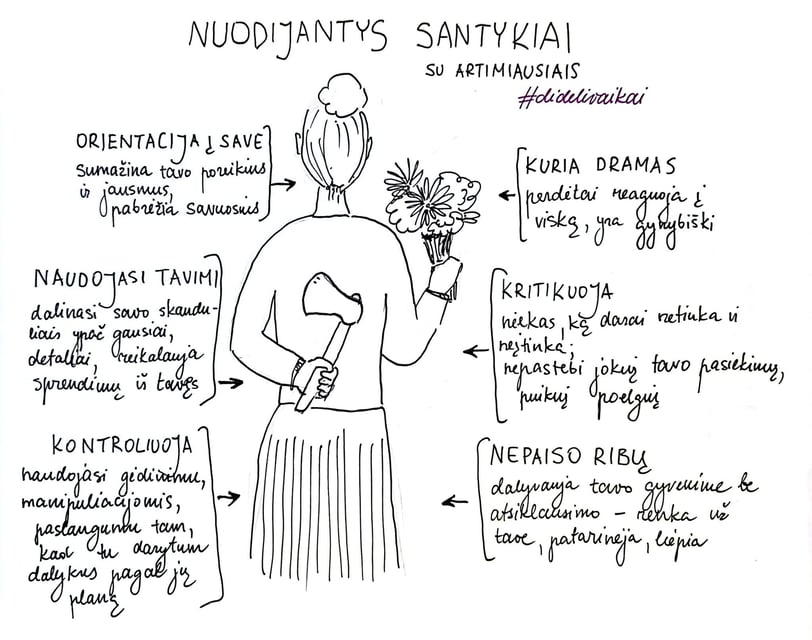 NUODIJANTYS SANTYKIAI
SU ARTIMIAUSIAIS
#didelivaikai
ORIENTACIJA Į SAVE
sumažina tavo poreikius
ir jausmus,
pabrėžia savuosius
NAUDOJASI TAVIMI
dalinasi savo skaudu-
liais ypač gausiai,
detaliai, reikalauja
sprendimų iš tavęs
KONTROLIUOJA
naudojasi gėdinimu,
manipuliacijomis,
paslaugumu tam,
kad tu darytum
dalykus pagal jų
planą
KURIA DRAMAS
perdėtai reaguoja į
viską, yra gynybiški
KRITIKUOJA
niekas, ką darai netinka ir
neįtinka;
nepastebi jokių tavo pasiekimų,
puikių poelgių
NEPAISO RIBŲ
dalyvauja tavo gyvenime be
atsiklausimo – renka už
tave, patarinėja, liepia